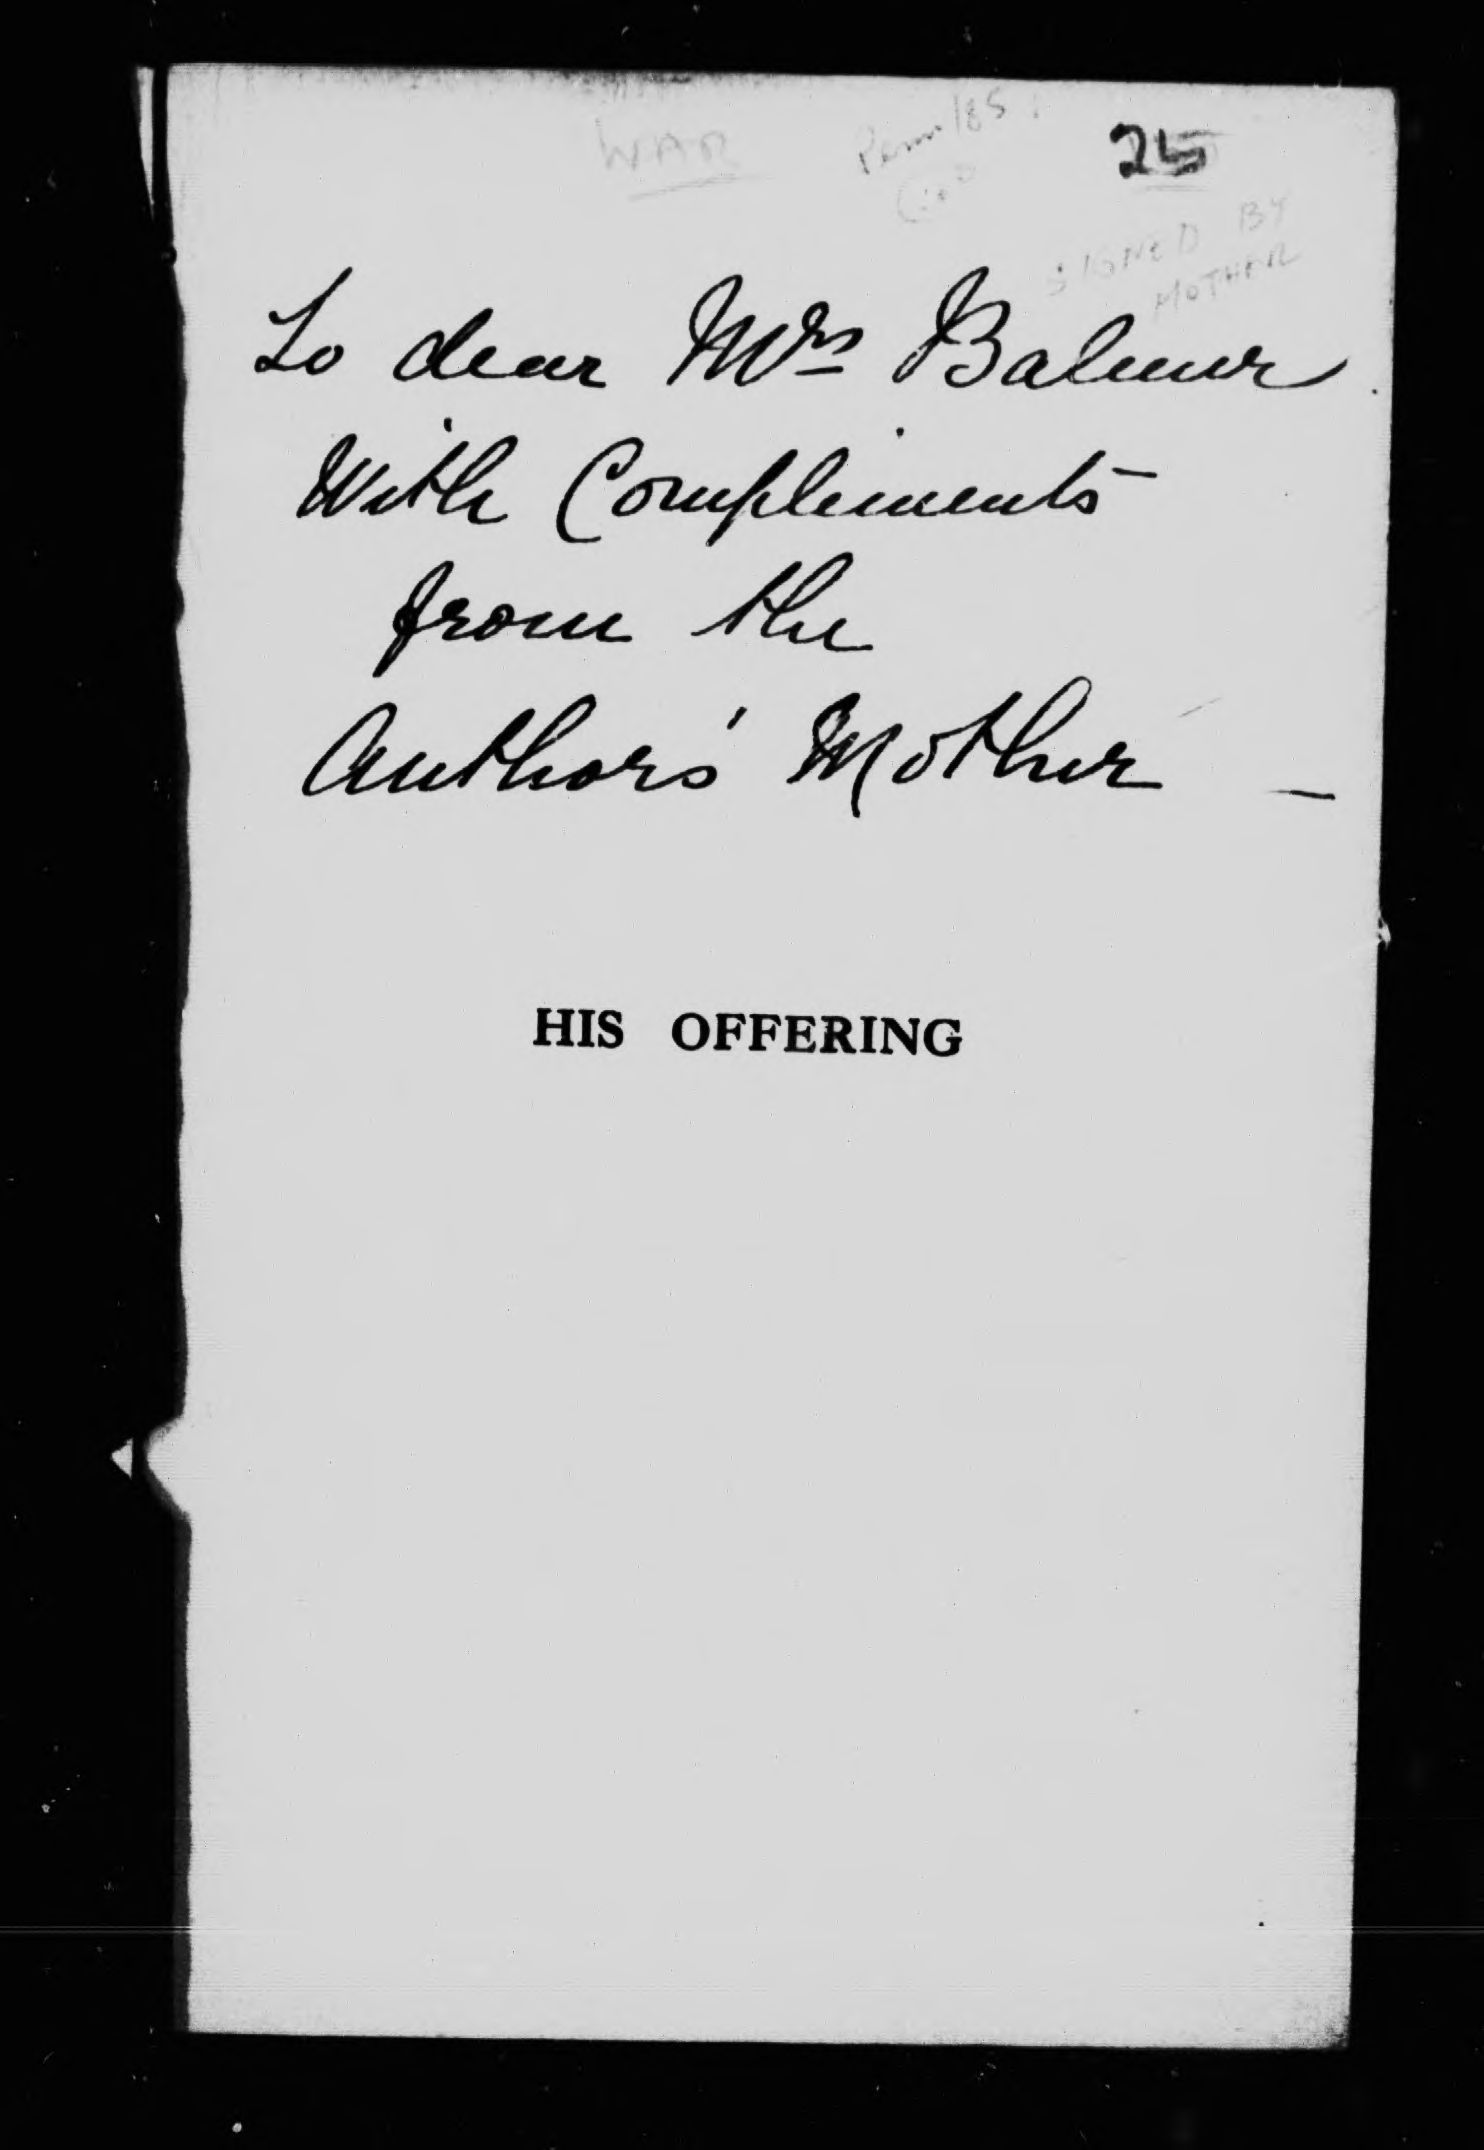 WAR
25
SIGNED BY
MOTHER
To dear Mrs Balmer
With Compliments
from the
Author's Mother —
HIS OFFERING